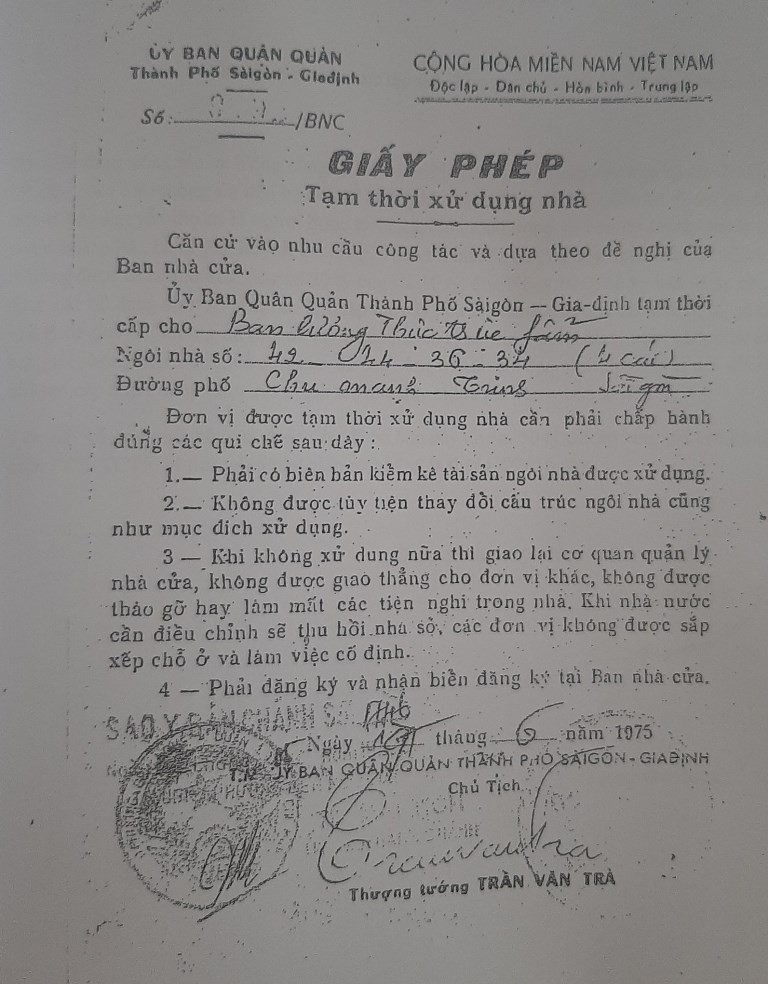 ỦY BAN QUÂN QUẢN
Thành Phố Sàigòn - Giađịnh
CỘNG HÒA MIỀN NAM VIỆT NAM
Độc lập - Dân chủ - Hòa bình - Trung lập
Số: /BNC
GIẤY PHÉP
Tạm thời xử dụng nhà
Căn cứ vào nhu cầu công tác và dựa theo đề nghị của
Ban nhà cửa.
Ủy Ban Quân Quản Thành Phố Sàigòn — Gia-định tạm thời
cấp cho Ban lương Thực
Ngôi nhà số: 42 - 36 - 34 (4 cái)
Đường phố Chu mạnh Trinh Sàigòn
Đơn vị được tạm thời xử dụng nhà cần phải chấp hành
đúng các qui chế sau dây :
1.— Phải có biên bản kiểm kê tài sản ngôi nhà được xử dụng.
2.— Không được tùy tiện thay đổi cấu trúc ngôi nhà cũng
như mục đích xử dụng.
3 — Khi không xử dung nữa thì giao lại cơ quan quản lý
nhà cửa, không được giao thẳng cho đơn vị khác, không được
tháo gỡ hay làm mất các tiện nghi trong nhà. Khi nhà nước
cần điều chỉnh sẽ thu hồi nhà sở, các đơn vị không được sắp
xếp chỗ ở và làm việc cố định.
4 — Phải đăng ký và nhận biển đăng ký tại Ban nhà cửa.
SAO Y BẢN CHÁNH SỐ
Ngày tháng 6 năm 1975
T.M ỦY BAN QUÂN QUẢN THÀNH PHỐ SÀIGÒN - GIAĐỊNH
Chủ Tịch
Thượng tướng TRẦN VĂN TRÀ